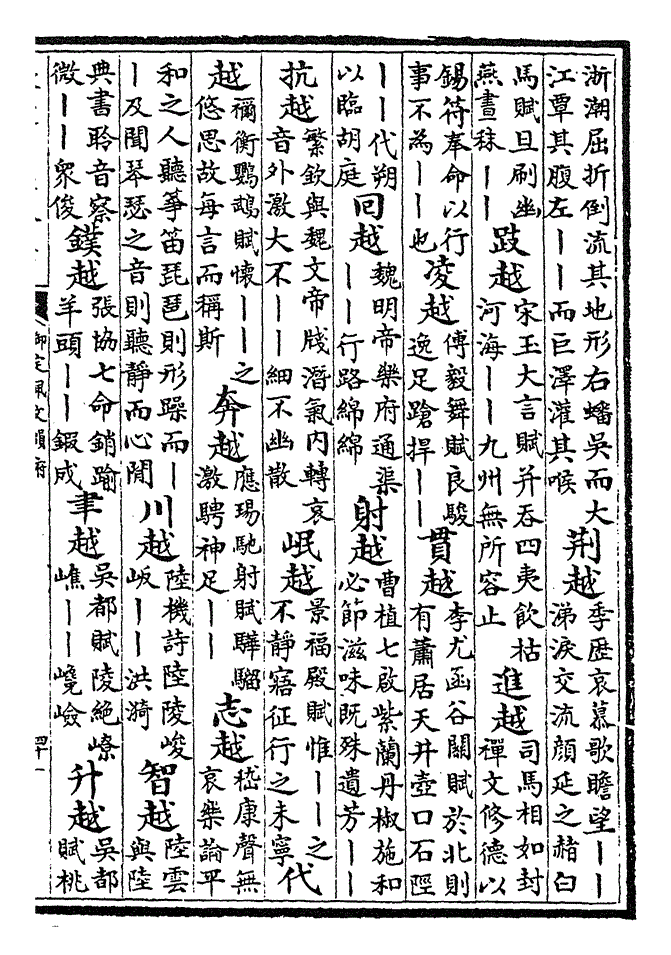 浙潮屈折倒流其地形右蟠吳而大江覃其腹左——而巨澤灌其喉 荊越 季歴哀慕歌瞻望——涕淚交流顔延之赭白
馬賦旦刷幽燕晝秣—— 跂越 宋玉大言賦并吞四夷飲枯河海——九州無所容止 進越 司馬相如封禪文修德以
錫符奉命以行事不為——也 凌越 傅毅舞賦良駿逸足蹌捍—— 貫越 李尤函谷關賦於北則有蕭居天井壺口石陘
——代朔以臨胡庭 回越 魏明帝樂府通渠——行路綿綿 射越 曹植七啟紫蘭丹椒施和必節滋味既殊遺芳——
抗越 繁欽與魏文帝牋潛氣内轉哀音外激大不——細不幽散 岷越 景福殿賦惟——之不靜寤征行之未寧 代
越 禰衡鸚鵡賦懷——之悠思故每言而稱斯 奔越 應瑒馳射賦驊騮激騁神足—— 志越 嵇康聲無哀樂論平
和之人聽箏笛琵琶則形躁而——及聞琴瑟之音則聽靜而心閒 川越 陸機詩陸陵峻岅——洪漪 智越 陸雲與陸
典書聆音察微——衆俊 鏷越 張協七命銷踰羊頭——鍜成 聿越 吳都賦陵絕嶚嶕——嶢嶮 升越 吳都賦桃
御定佩文韻府
四十一